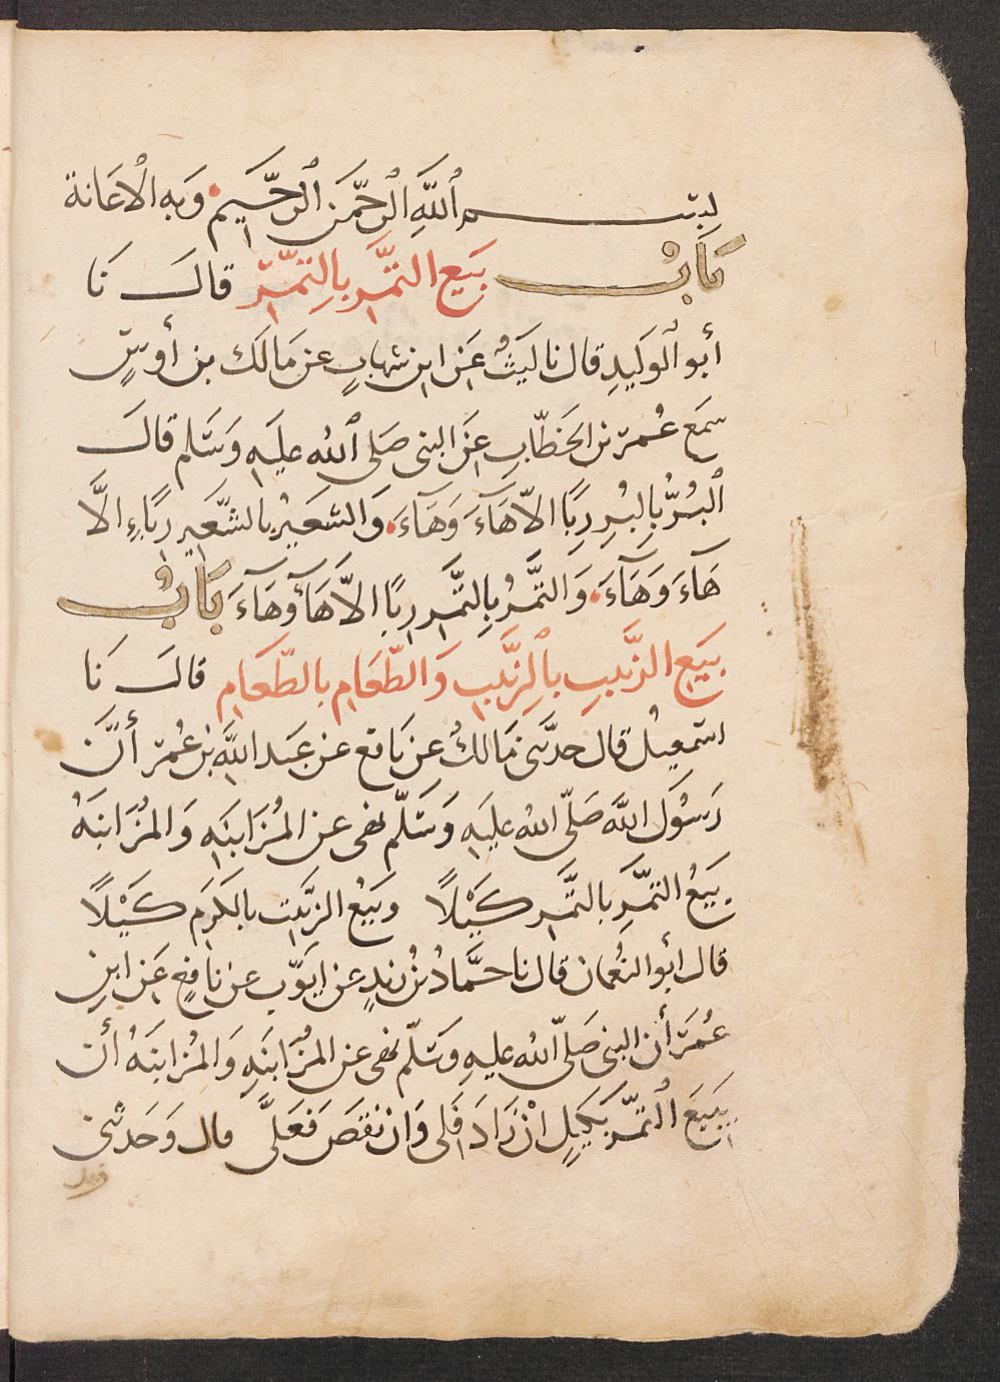 بسم الله الرحمن الرحيم وبه الاعانة
باب بيع التمر بالتمر قال نا
أبو الوليد قال نا ليث عن ابن شهاب عن مالك بن أوس
سمع عمر بن الخطاب عن النبي صلى الله عليه وسلم قال
البر بالبر ربا الا هاء وهاء والشعير بالشعير رباء الا
هاء وهاء والتمر بالتمر ربا الا هاء وهاء باب
بيع الزبيب بالزبيب والطعام بالطعام قال نا
اسمعيل قال حدثني مالك عن نافع عن عبد الله بن عمر أن
رسول الله صلى الله عليه وسلم نهى عن المزابنه والمزابنه
بيع التمر بالتمر كيلا وبيع الزبيب بالكرم كيلا
قال أبو النعمان قال نا حماد بن زيد عن ايوب عن نافع عن ابن
عمر أن النبي صلى الله عليه وسلم نهى عن المزابنه والمزابنه أن
يبيع التمر بكيل ان زاد فلى وان نقص فعلى قال وحدثني